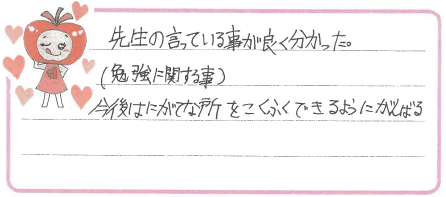 先生の言っている事が良く分かった。
(勉強に関する事)
今後はにがてな所をこくふくできるようにがんばる